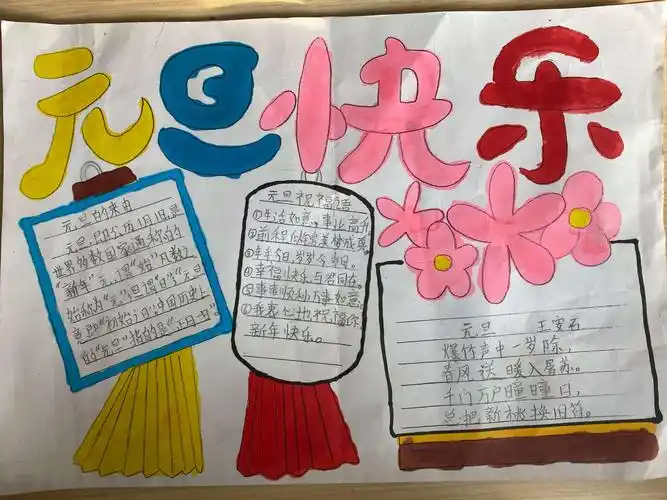 元旦快乐
元旦的来由
元旦,即公历1月1日,是
世界多数国家通称的
“新年”。元,谓“始”,凡数之
始称为“元”;旦,谓“日”;“元旦”
意即“初始之日”。中国历史上
的“元旦”指的是“正月一日”。
元旦祝福语
①生活如意,事业高升。
②前程似锦,美梦成真。
③年年今日,岁岁今朝。
④幸福快乐与君同在。
⑤事事顺利,万事如意。
⑥我衷心地祝福你,
新年快乐。
元旦 王安石
爆竹声中一岁除,
春风送暖入屠苏。
千门万户曈曈日,
总把新桃换旧符。